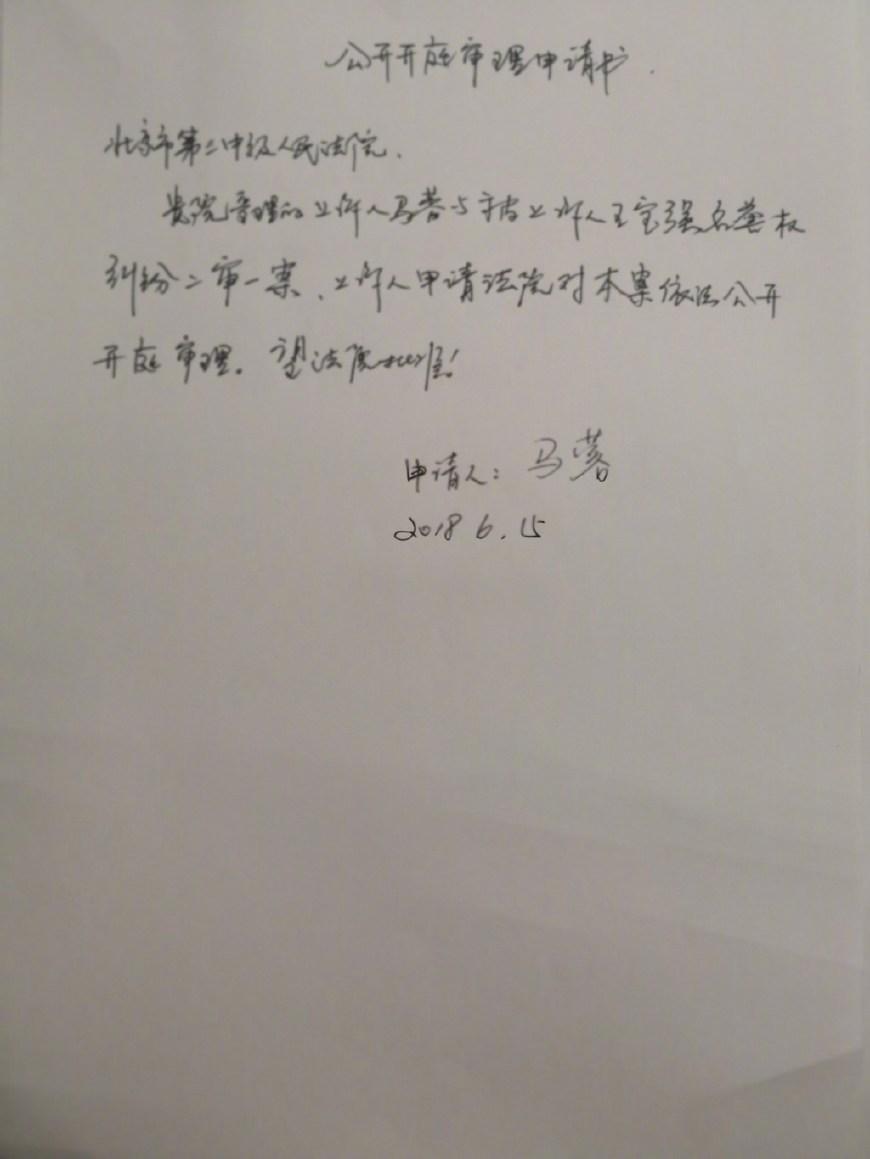 公开开庭审理申请书.
北京市第二中级人民法院.
贵院审理的上诉人马蓉与被上诉人王宝强名誉权
纠纷二审一案、上诉人申请法院对本案依法公开
开庭审理。望法院批准!
申请人: 马蓉
2018 6.15